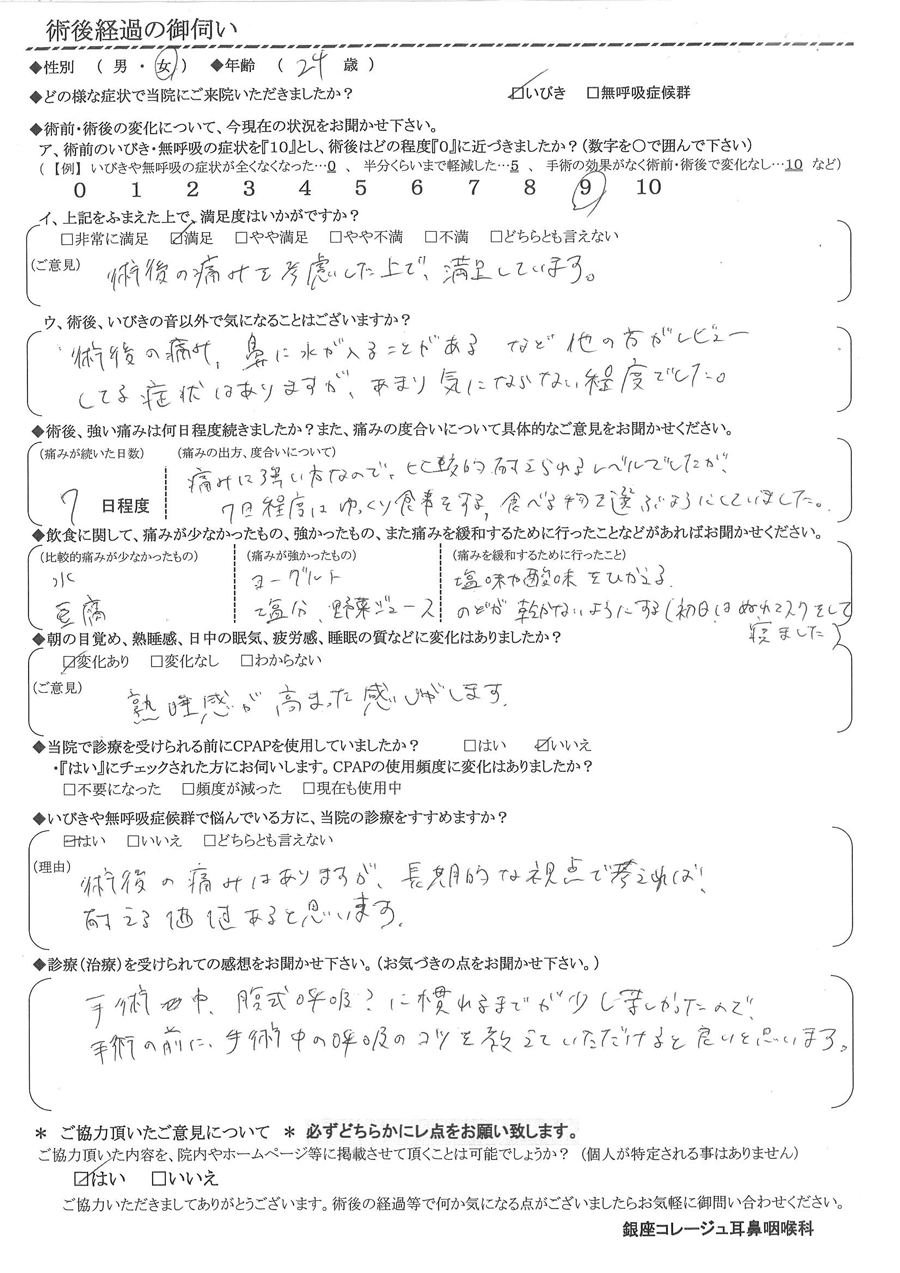 術後経過の御伺い
◆性別 （ 男 ・ 女 ） ◆年齢 （ 24 歳 ）
◆どの様な症状で当院にご来院いただきましたか？ ☑いびき □無呼吸症候群
◆術前・術後の変化について、今現在の状況をお聞かせ下さい。
ア、術前のいびき・無呼吸の症状を『10』とし、術後はどの程度『0』に近づきましたか？（数字を〇で囲んで下さい）
（【例】 いびきや無呼吸の症状が全くなくなった…0 、 半分くらいまで軽減した…5 、 手術の効果がなく術前・術後で変化なし…10 など）
0 1 2 3 4 5 6 7 8 9 10
イ、上記をふまえた上で、満足度はいかがですか？
□非常に満足 ☑満足 □やや満足 □やや不満 □不満 □どちらとも言えない
（ご意見） 術後の痛みを考慮した上で、満足しています。
ウ、術後、いびきの音以外で気になることはございますか？
術後の痛み、鼻に水が入ることがある など他の方がレビュー
してる症状はありますが、あまり気にならない程度でした。
◆術後、強い痛みは何日程度続きましたか？また、痛みの度合いについて具体的なご意見をお聞かせください。
（痛みが続いた日数） （痛みの出方、度合いについて）
痛みに強い方なので、比較的耐えられるレベルでしたが、
7 日程度 7日程度はゆっくり食事をする、食べる物を選ぶようにしていました。
◆飲食に関して、痛みが少なかったもの、強かったもの、また痛みを緩和するために行ったことなどがあればお聞かせください。
（比較的痛みが少なかったもの） （痛みが強かったもの） （痛みを緩和するために行ったこと）
水 ヨーグルト 塩味や酸味をひかえる
豆腐 塩分、野菜ジュース のどが乾かないようにする（初日はぬれマスクをして
寝ました）
◆朝の目覚め、熟睡感、日中の眠気、疲労感、睡眠の質などに変化はありましたか？
☑変化あり □変化なし □わからない
（ご意見） 熟睡感が高まった感じがします。
◆当院で診療を受けられる前にCPAPを使用していましたか？ □はい ☑いいえ
・『はい』にチェックされた方にお伺いします。CPAPの使用頻度に変化はありましたか？
□不要になった □頻度が減った □現在も使用中
◆いびきや無呼吸症候群で悩んでいる方に、当院の診療をすすめますか？
☑はい □いいえ □どちらとも言えない
（理由） 術後の痛みはありますが、長期的な視点で考えれば、
耐える価値あると思います。
◆診療（治療）を受けられての感想をお聞かせ下さい。（お気づきの点をお聞かせ下さい。）
手術中、腹式呼吸？に慣れるまでが少し苦しかったので、
手術の前に、手術中の呼吸のコツを教えていただけると良いと思います。
＊ ご協力頂いたご意見について ＊ 必ずどちらかにレ点をお願い致します。
ご協力頂いた内容を、院内やホームページ等に掲載させて頂くことは可能でしょうか？ （個人が特定される事はありません）
☑はい □いいえ
ご協力いただきましてありがとうございます。術後の経過等で何か気になる点がございましたらお気軽に御問い合わせください。
銀座コレージュ耳鼻咽喉科